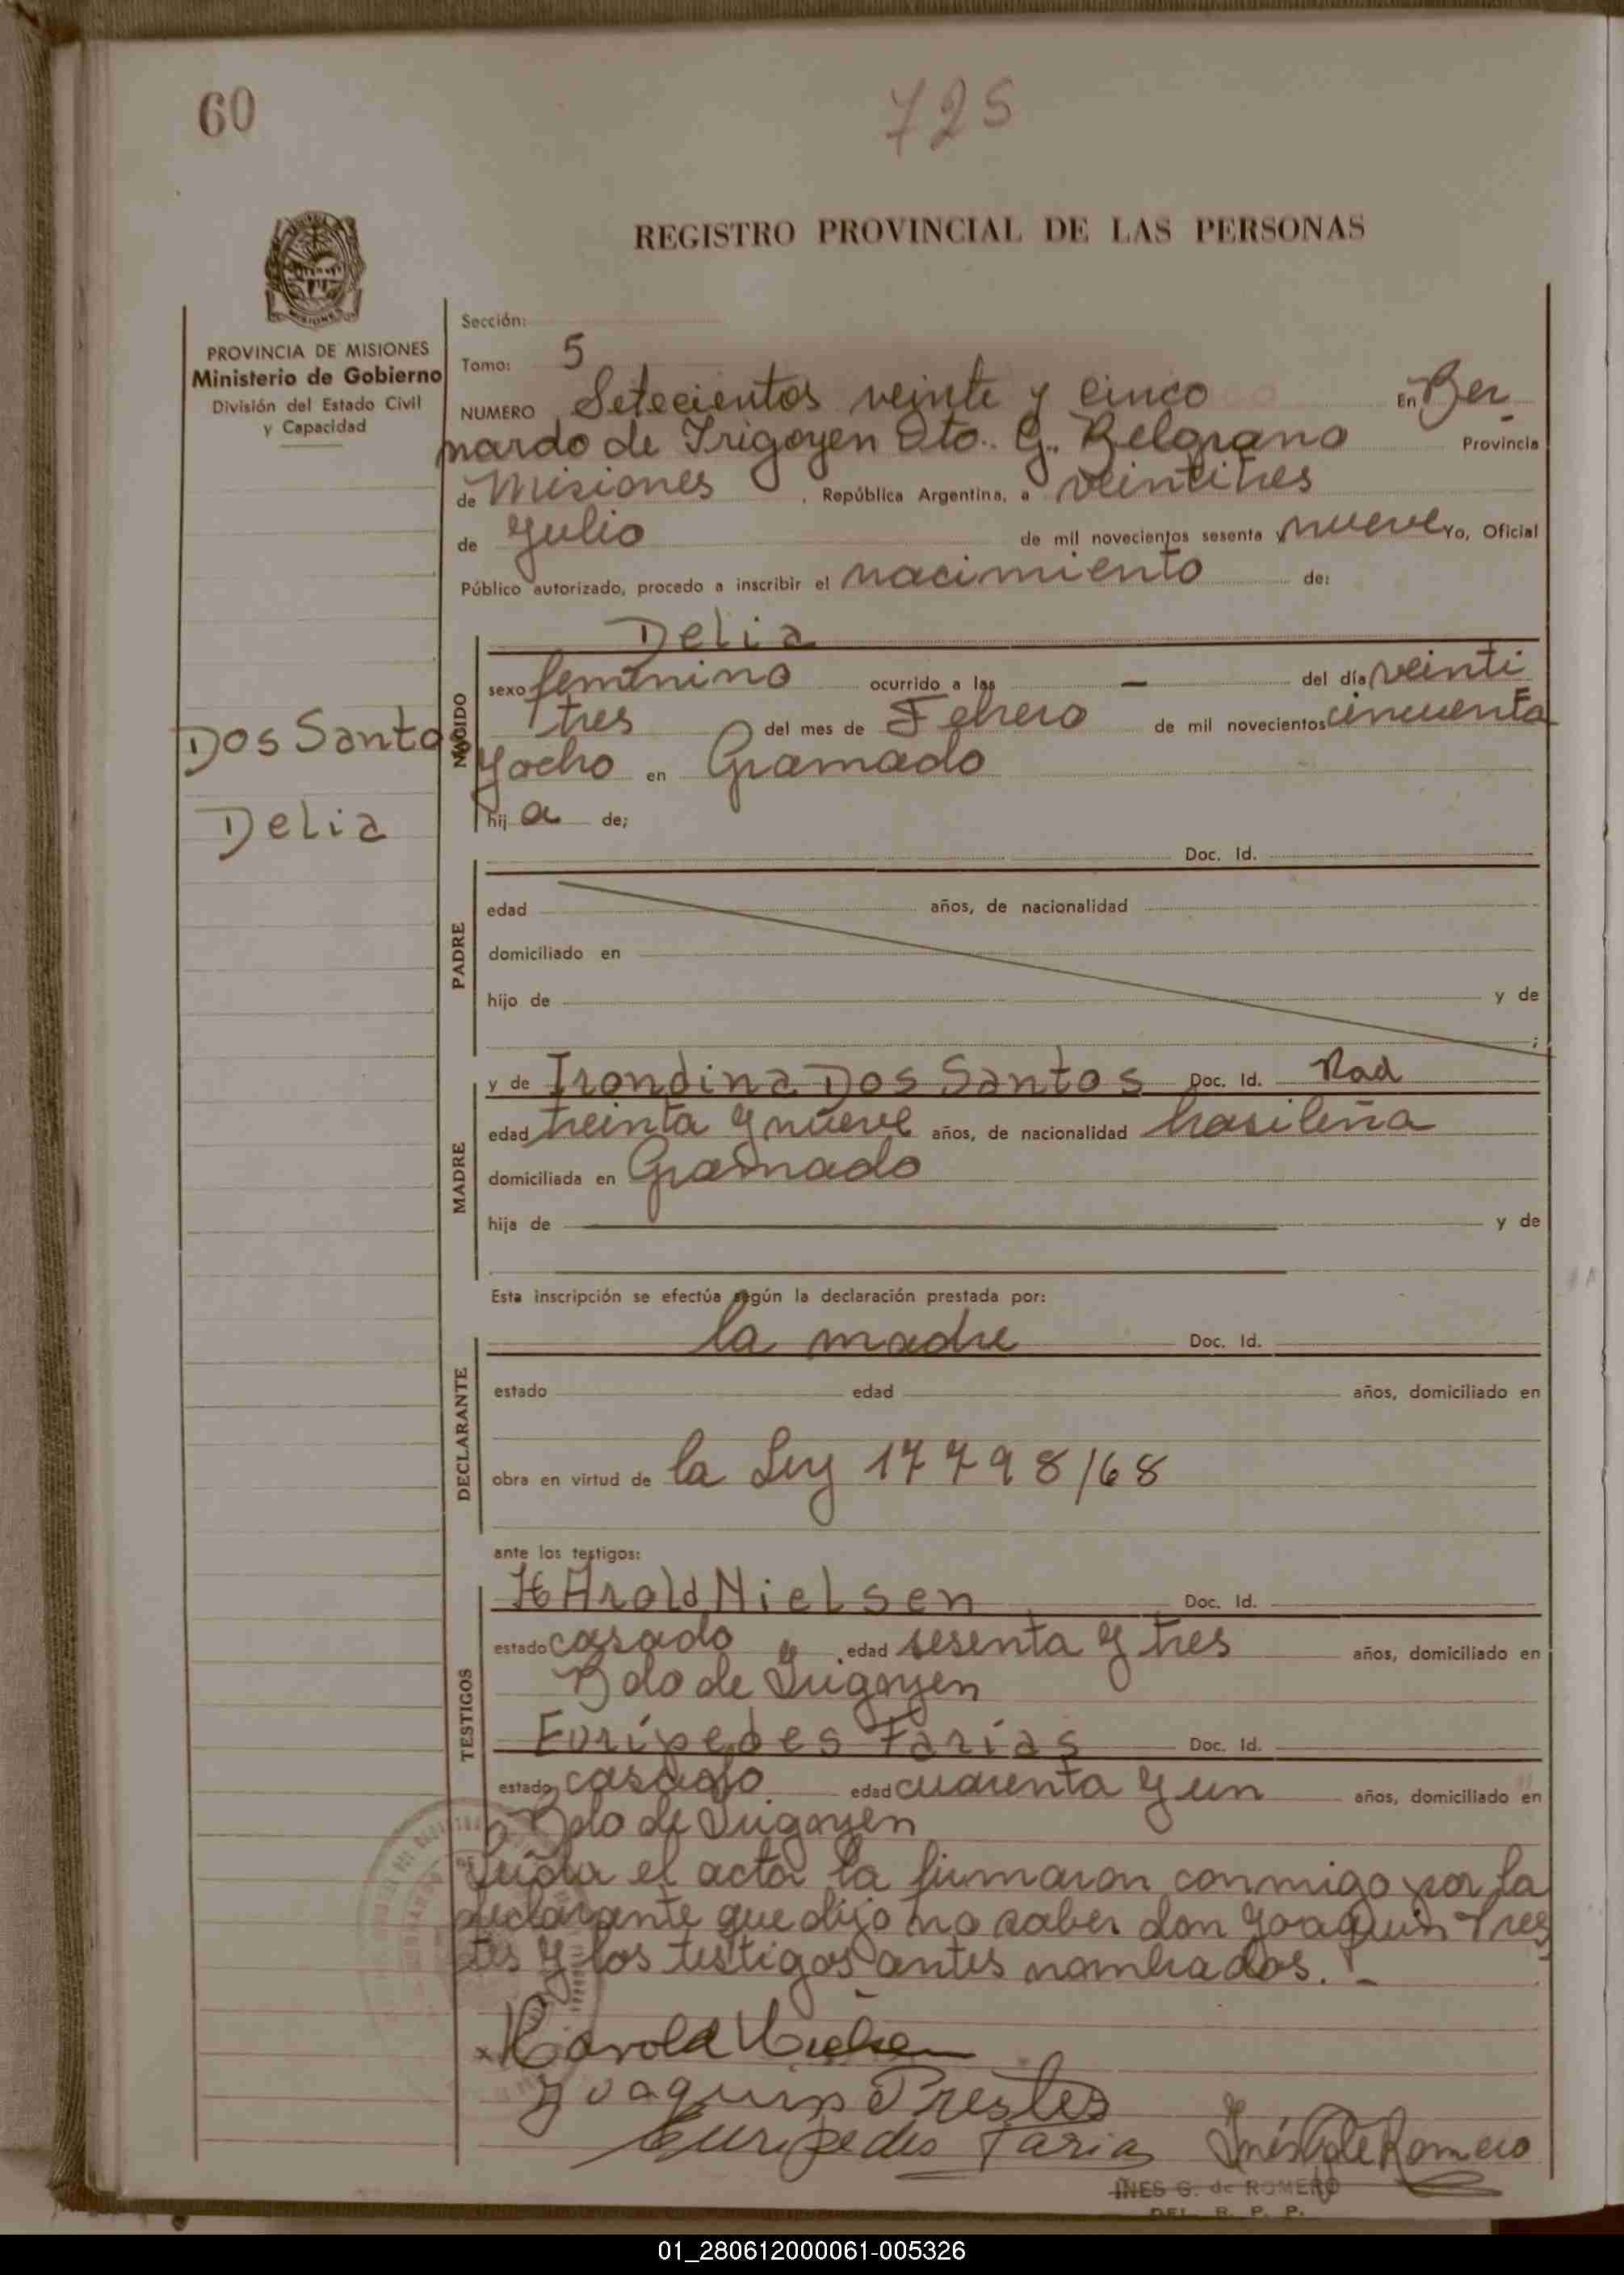 60
725
REGISTRO PROVINCIAL DE LAS PERSONAS
MISIONES
PROVINCIA DE MISIONES
Ministerio de Gobierno
División del Estado Civil
y Capacidad
Dos Santos
Delia
Sección:
Tomo: 5
NUMERO Setecientos veinte y cinco En Ber
nardo de Irigoyen Dto. G. Belgrano Provincia
de Misiones, República Argentina, a veintitres
de Julio de mil novecientos sesenta y nueve Yo, Oficial
Público autorizado, procedo a inscribir el nacimiento de:
NACIDO
Delia
sexo femenino ocurrido a las — del día veinti
tres del mes de Febrero de mil novecientos cincuenta
y ocho en Gramado
hij a de;
PADRE
Doc. Id.
edad años, de nacionalidad
domiciliado en
hijo de y de
;
MADRE
y de Irondina Dos Santos Doc. Id. Rad
edad treinta y nueve años, de nacionalidad brasileña
domiciliada en Gramado
hija de y de
Esta inscripción se efectúa según la declaración prestada por:
DECLARANTE
la madre Doc. Id.
estado edad años, domiciliado en
obra en virtud de la Ley 17798/68
ante los testigos:
TESTIGOS
HArold Nielsen Doc. Id.
estado casado edad sesenta y tres años, domiciliado en
Bdo de Irigoyen
Eurípedes Farías Doc. Id.
estado casado edad cuarenta y un años, domiciliado en
Bdo de Irigoyen
Leída el acta la firmaron conmigo por la
declarante que dijo no saber don Joaquin Pres
tes y los testigos antes nombrados. -
x Harold Nielsen
Joaquin Prestes
Euripedes Farias Inés G de Romero
INES G. de ROMERO
DEL. R. P. P.
01_280612000061-005326